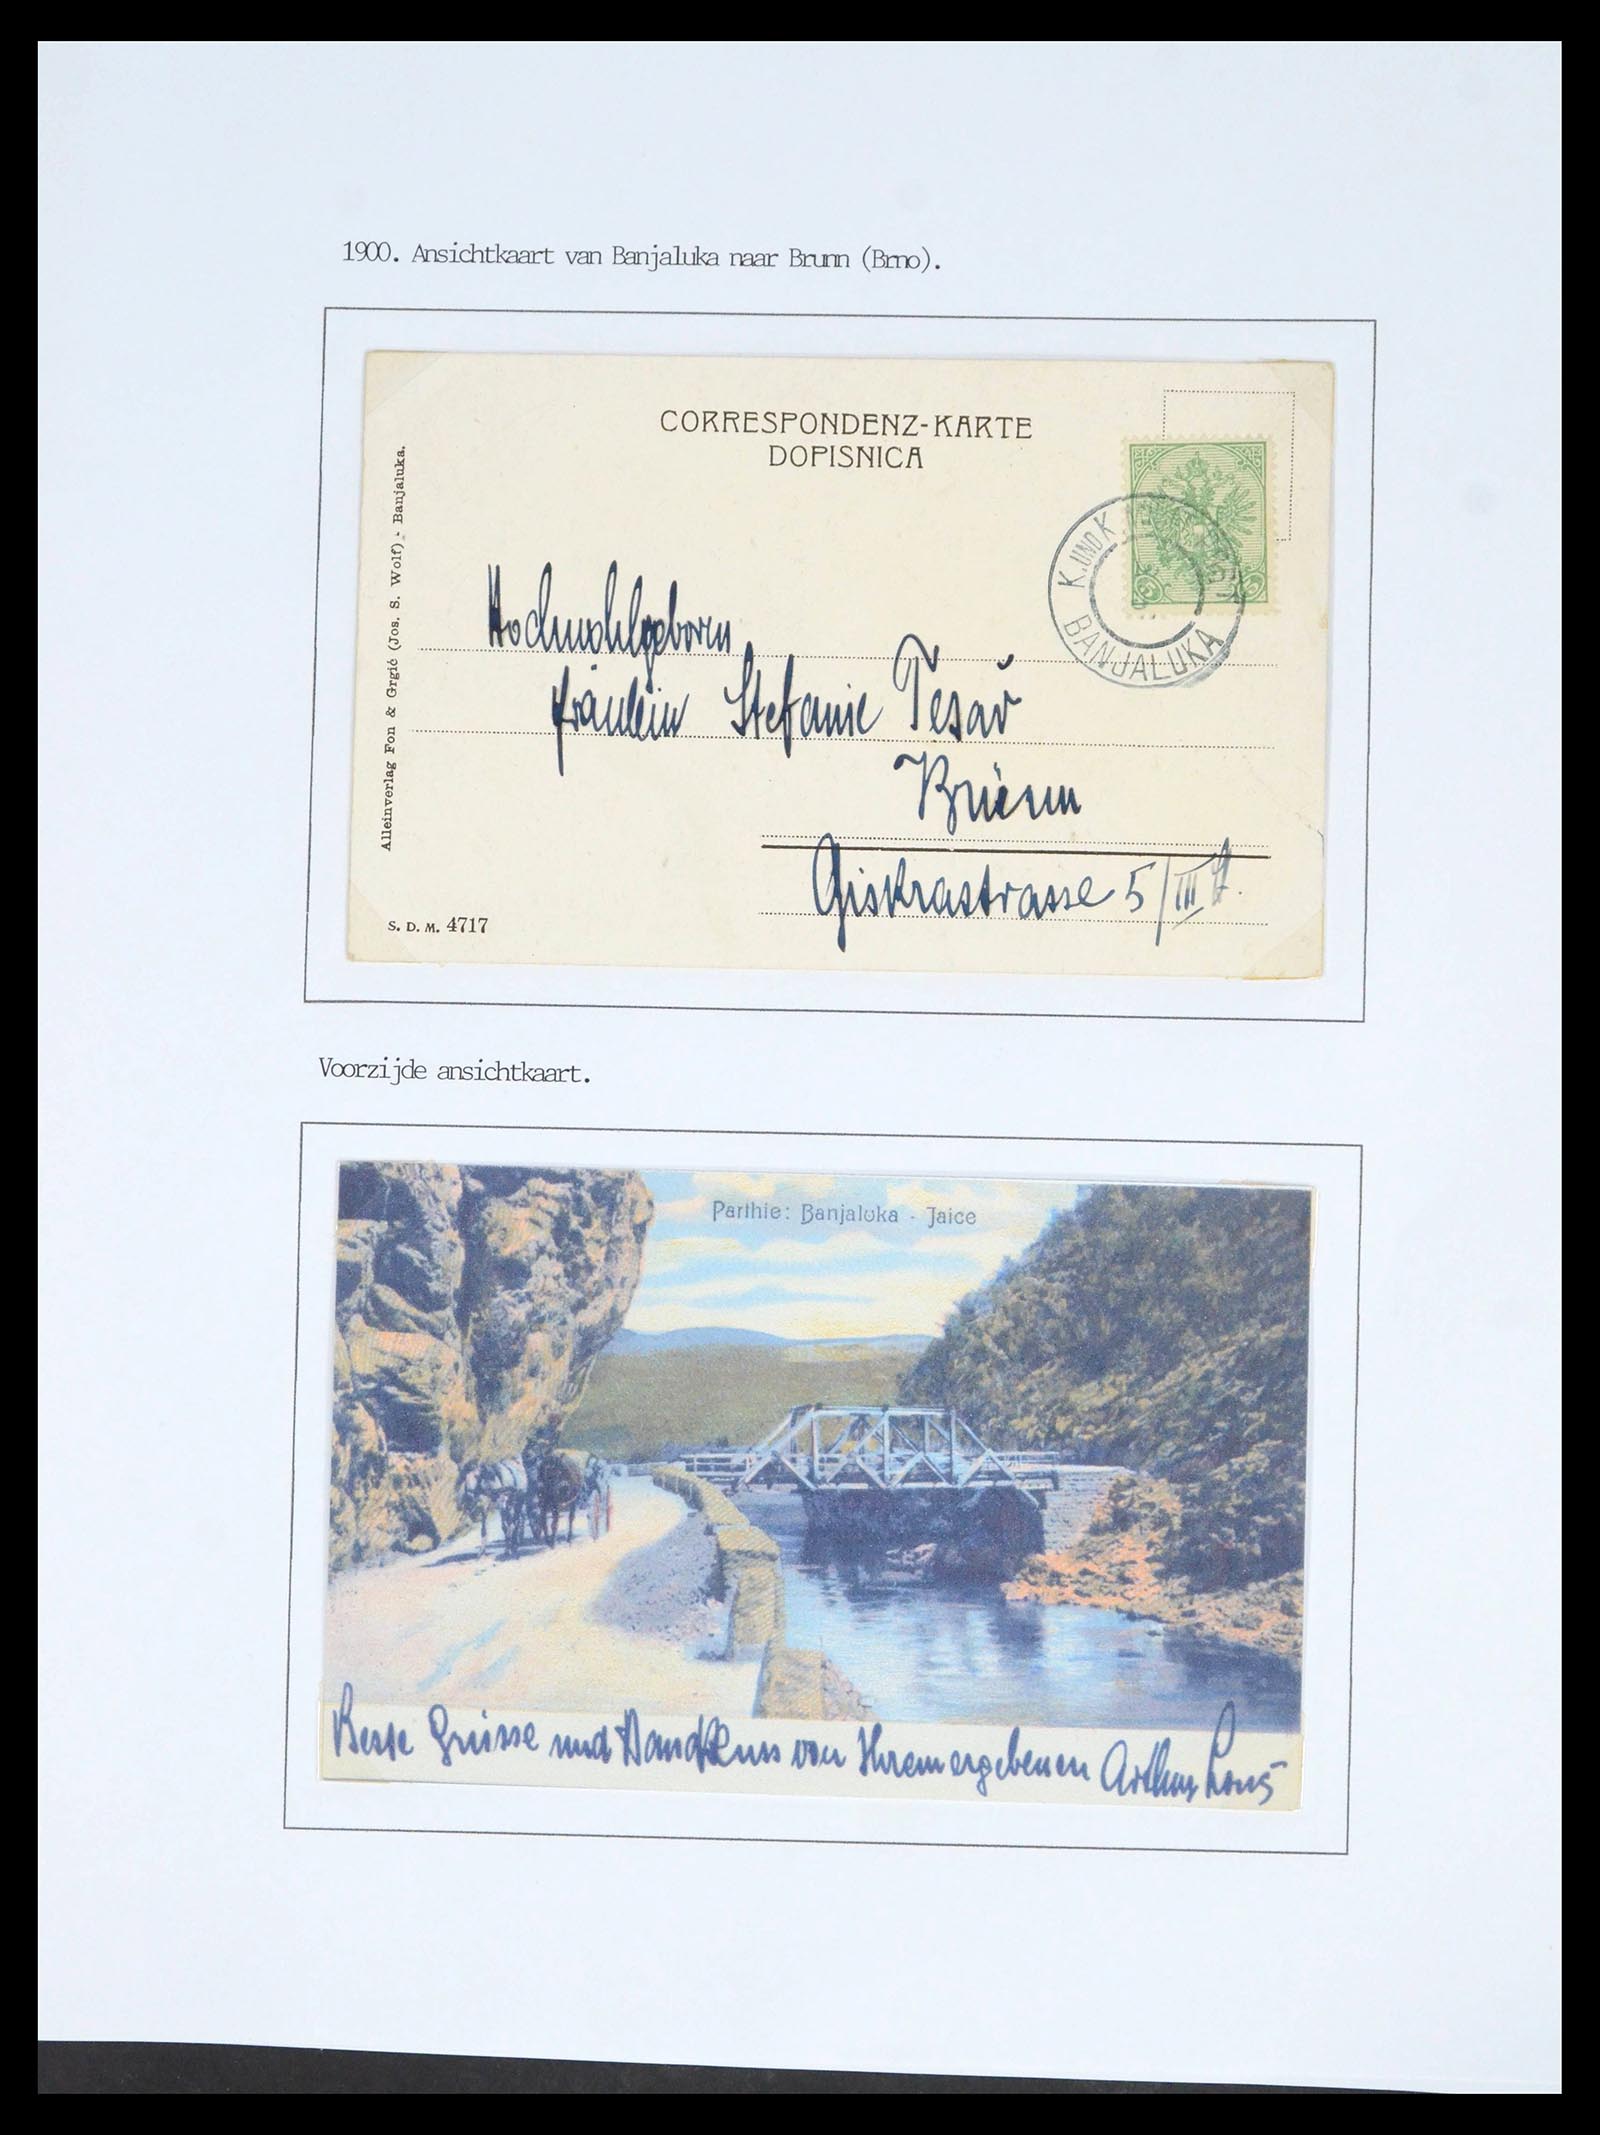 1900. Ansichtkaart van Banjaluka naar Brunn (Brno).
CORRESPONDENZ-KARTE
DOPISNICA
Alleinverlag Fon & Grgić (Jos. S. Wolf) - Banjaluka.
K. UND K.
BANJALUKA
5 5
Hochwohlgeboren
Fräulein Stefanie Tesař
Brünn
Giskrastrasse 5/III
S. D. M. 4717
Voorzijde ansichtkaart.
Parthie: Banjaluka - Jaice
Beste Grüsse und Handkuss von Ihrem ergebenen Arthur